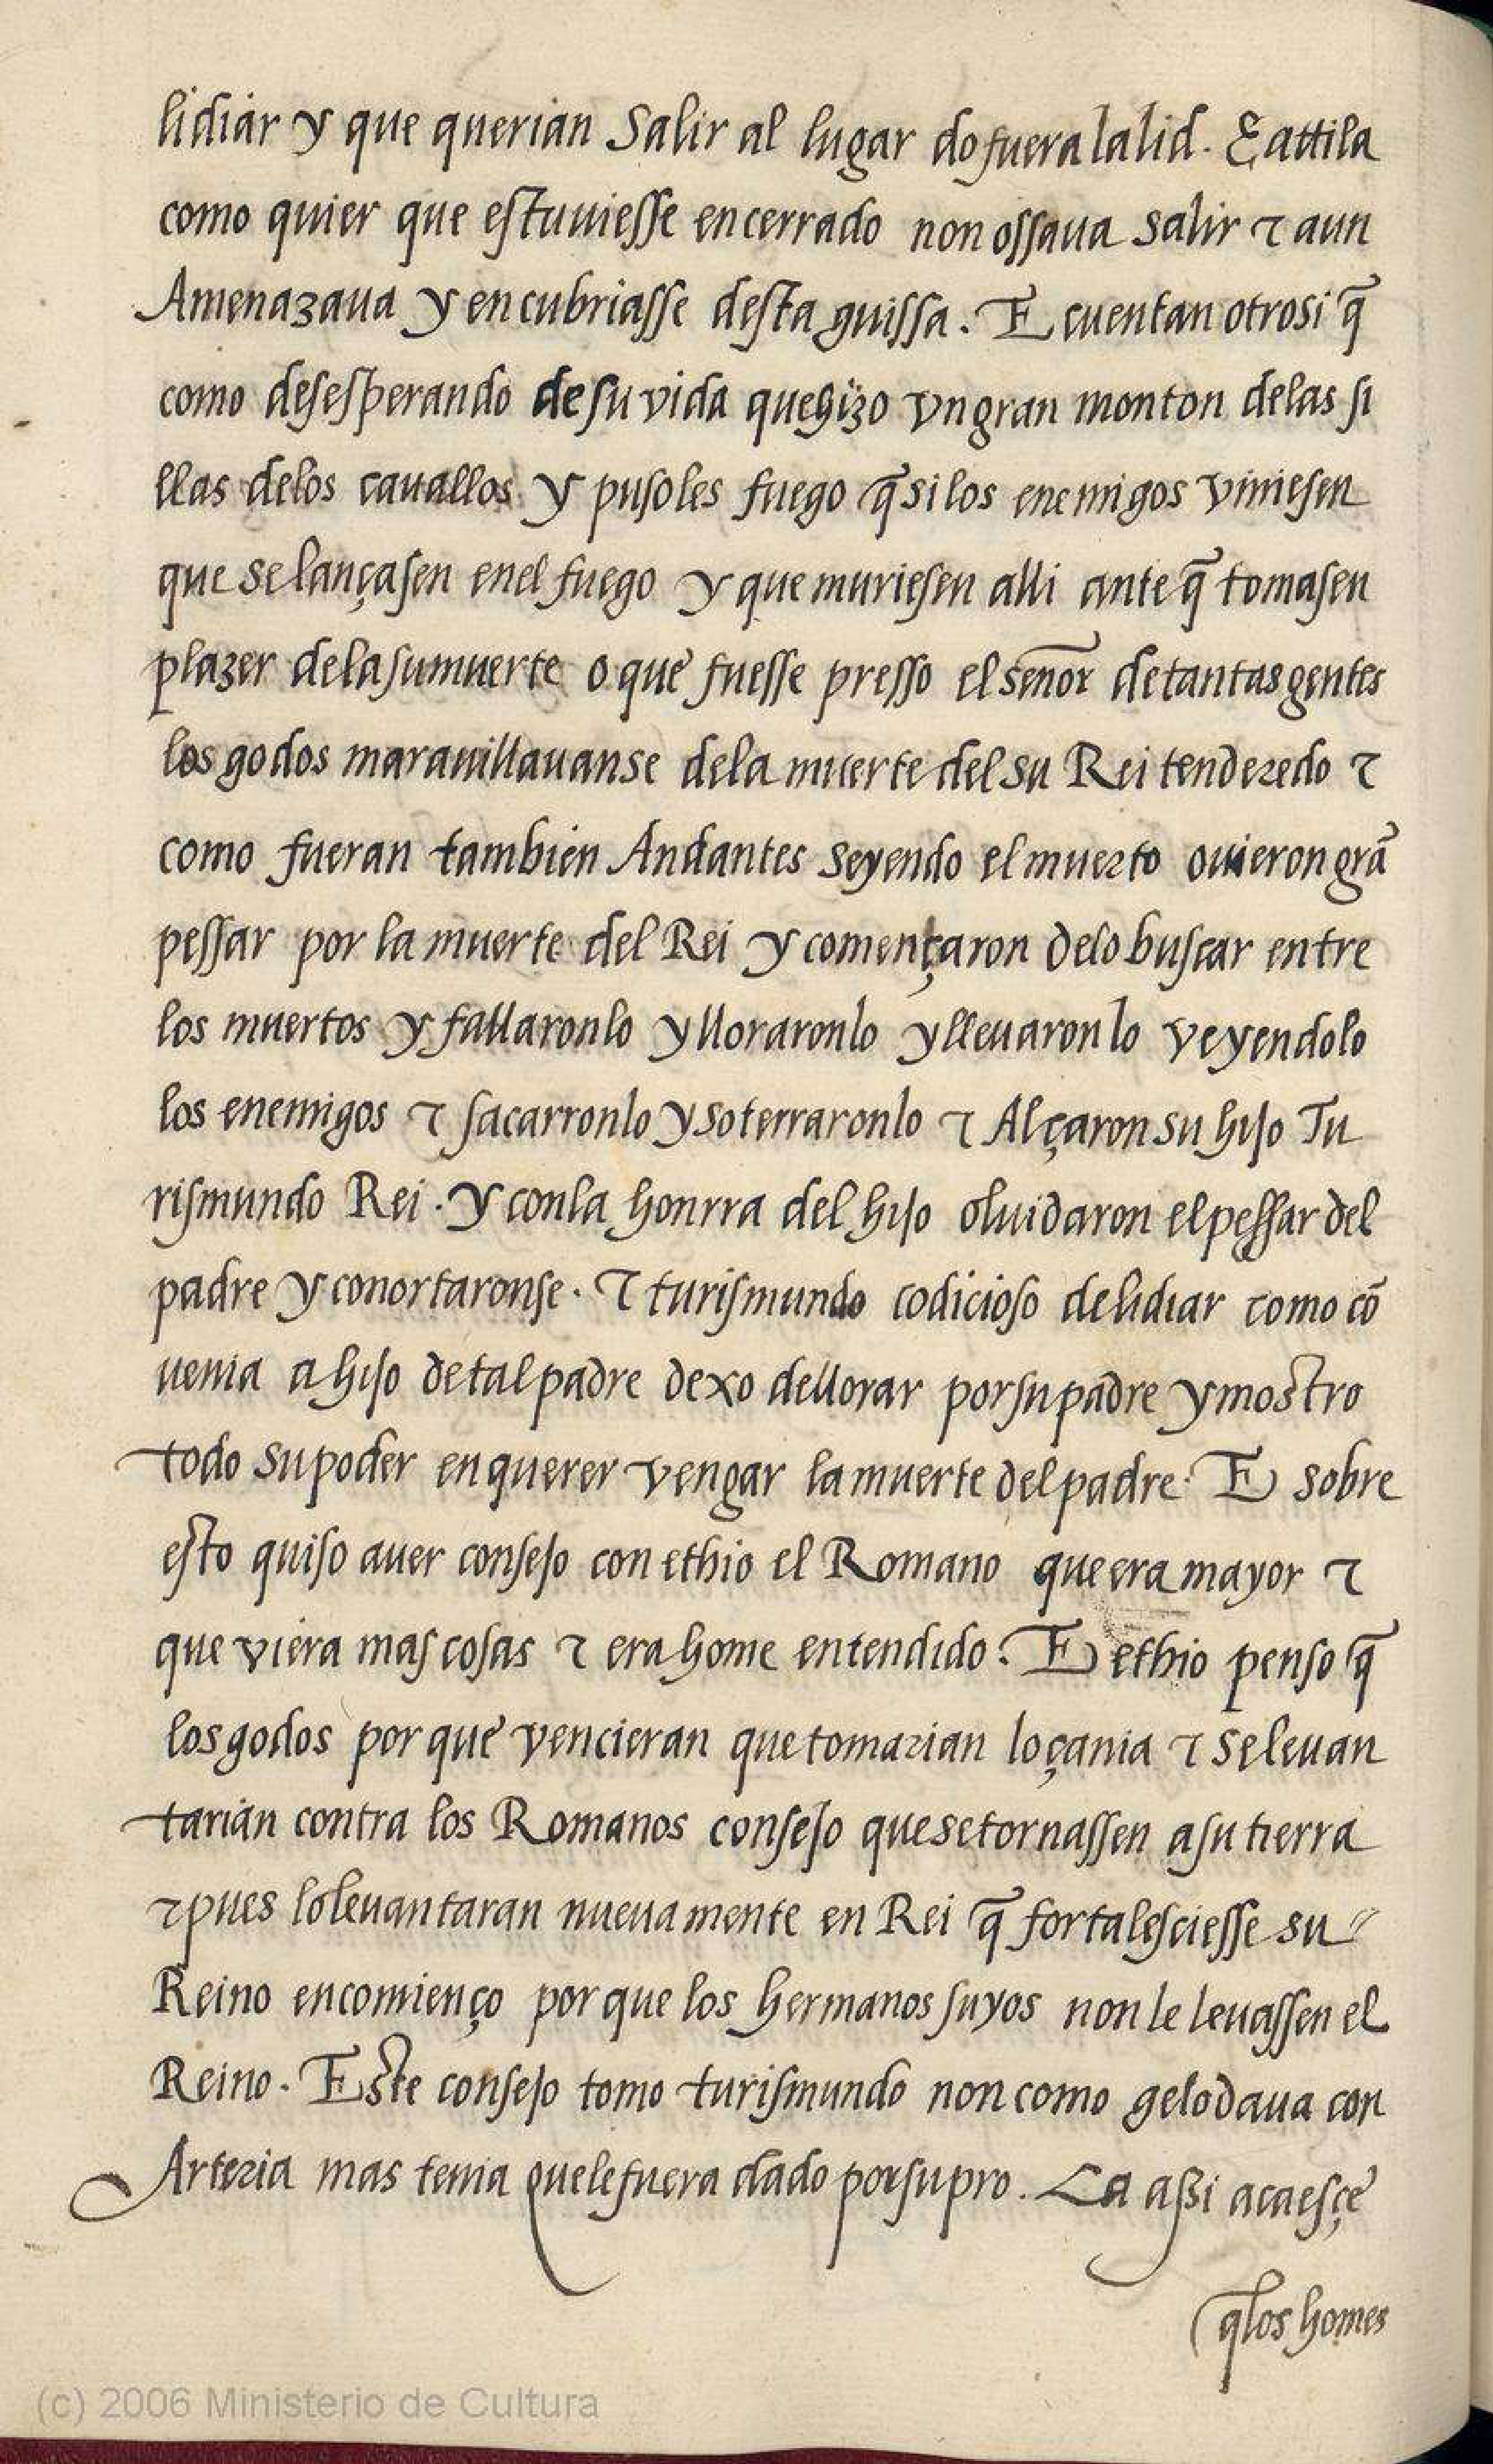 lidiar y que querian Salir al lugar do fuera la lid. E attila
como quier que estuuiesse encerrado non ossaua salir τ aun
Amenazaua y encubriasse desta guissa. E cuentan otrosi q̃
como desesperando de su vida que hizo vn gran monton delas si
llas delos cauallos y pusoles fuego q̃ si los enemigos viniesen
que se lançasen enel fuego y que muriesen alli ante q̃ tomasen
plazer dela su muerte o que fuesse presso el señor de tantas gentes
los godos marauillauanse dela muerte del su Rei tenderedo τ
como fueran tambien Andantes seyendo el muerto ouieron grã
pessar por la muerte del Rei y començaron delo buscar entre
los muertos y fallaronlo y lloraronlo y lleuaronlo veyendolo
los enemigos τ sacarronlo y soterraronlo τ Alçaron su hijo Tu
rismundo Rei. y conla honrra del hijo oluidaron el pessar del
padre y conortaronse. τ turismundo codicioso de lidiar como cõ
uenia a hijo de tal padre dexo de llorar por su padre y mostro
todo su poder en querer vengar la muerte del padre. E sobre
esto quiso auer consejo con ethio el Romano que era mayor τ
que viera mas cosas τ era home entendido. E ethio penso q̃
los godos por que vencieran que tomarian loçania τ se leuan
tarian contra los Romanos consejo que se tornassen a su tierra
τ pues lo leuantaran nueuamente en Rei q̃ fortalesciesse su
Reino en comienço por que los hermanos suyos non le leuassen el
Reino. Este consejo tomo turismundo non como gelo daua con
Arteria mas tenia que le fuera dado por su pro. Ca assi acaesçe
q̃ los homes
(c) 2006 Ministerio de Cultura